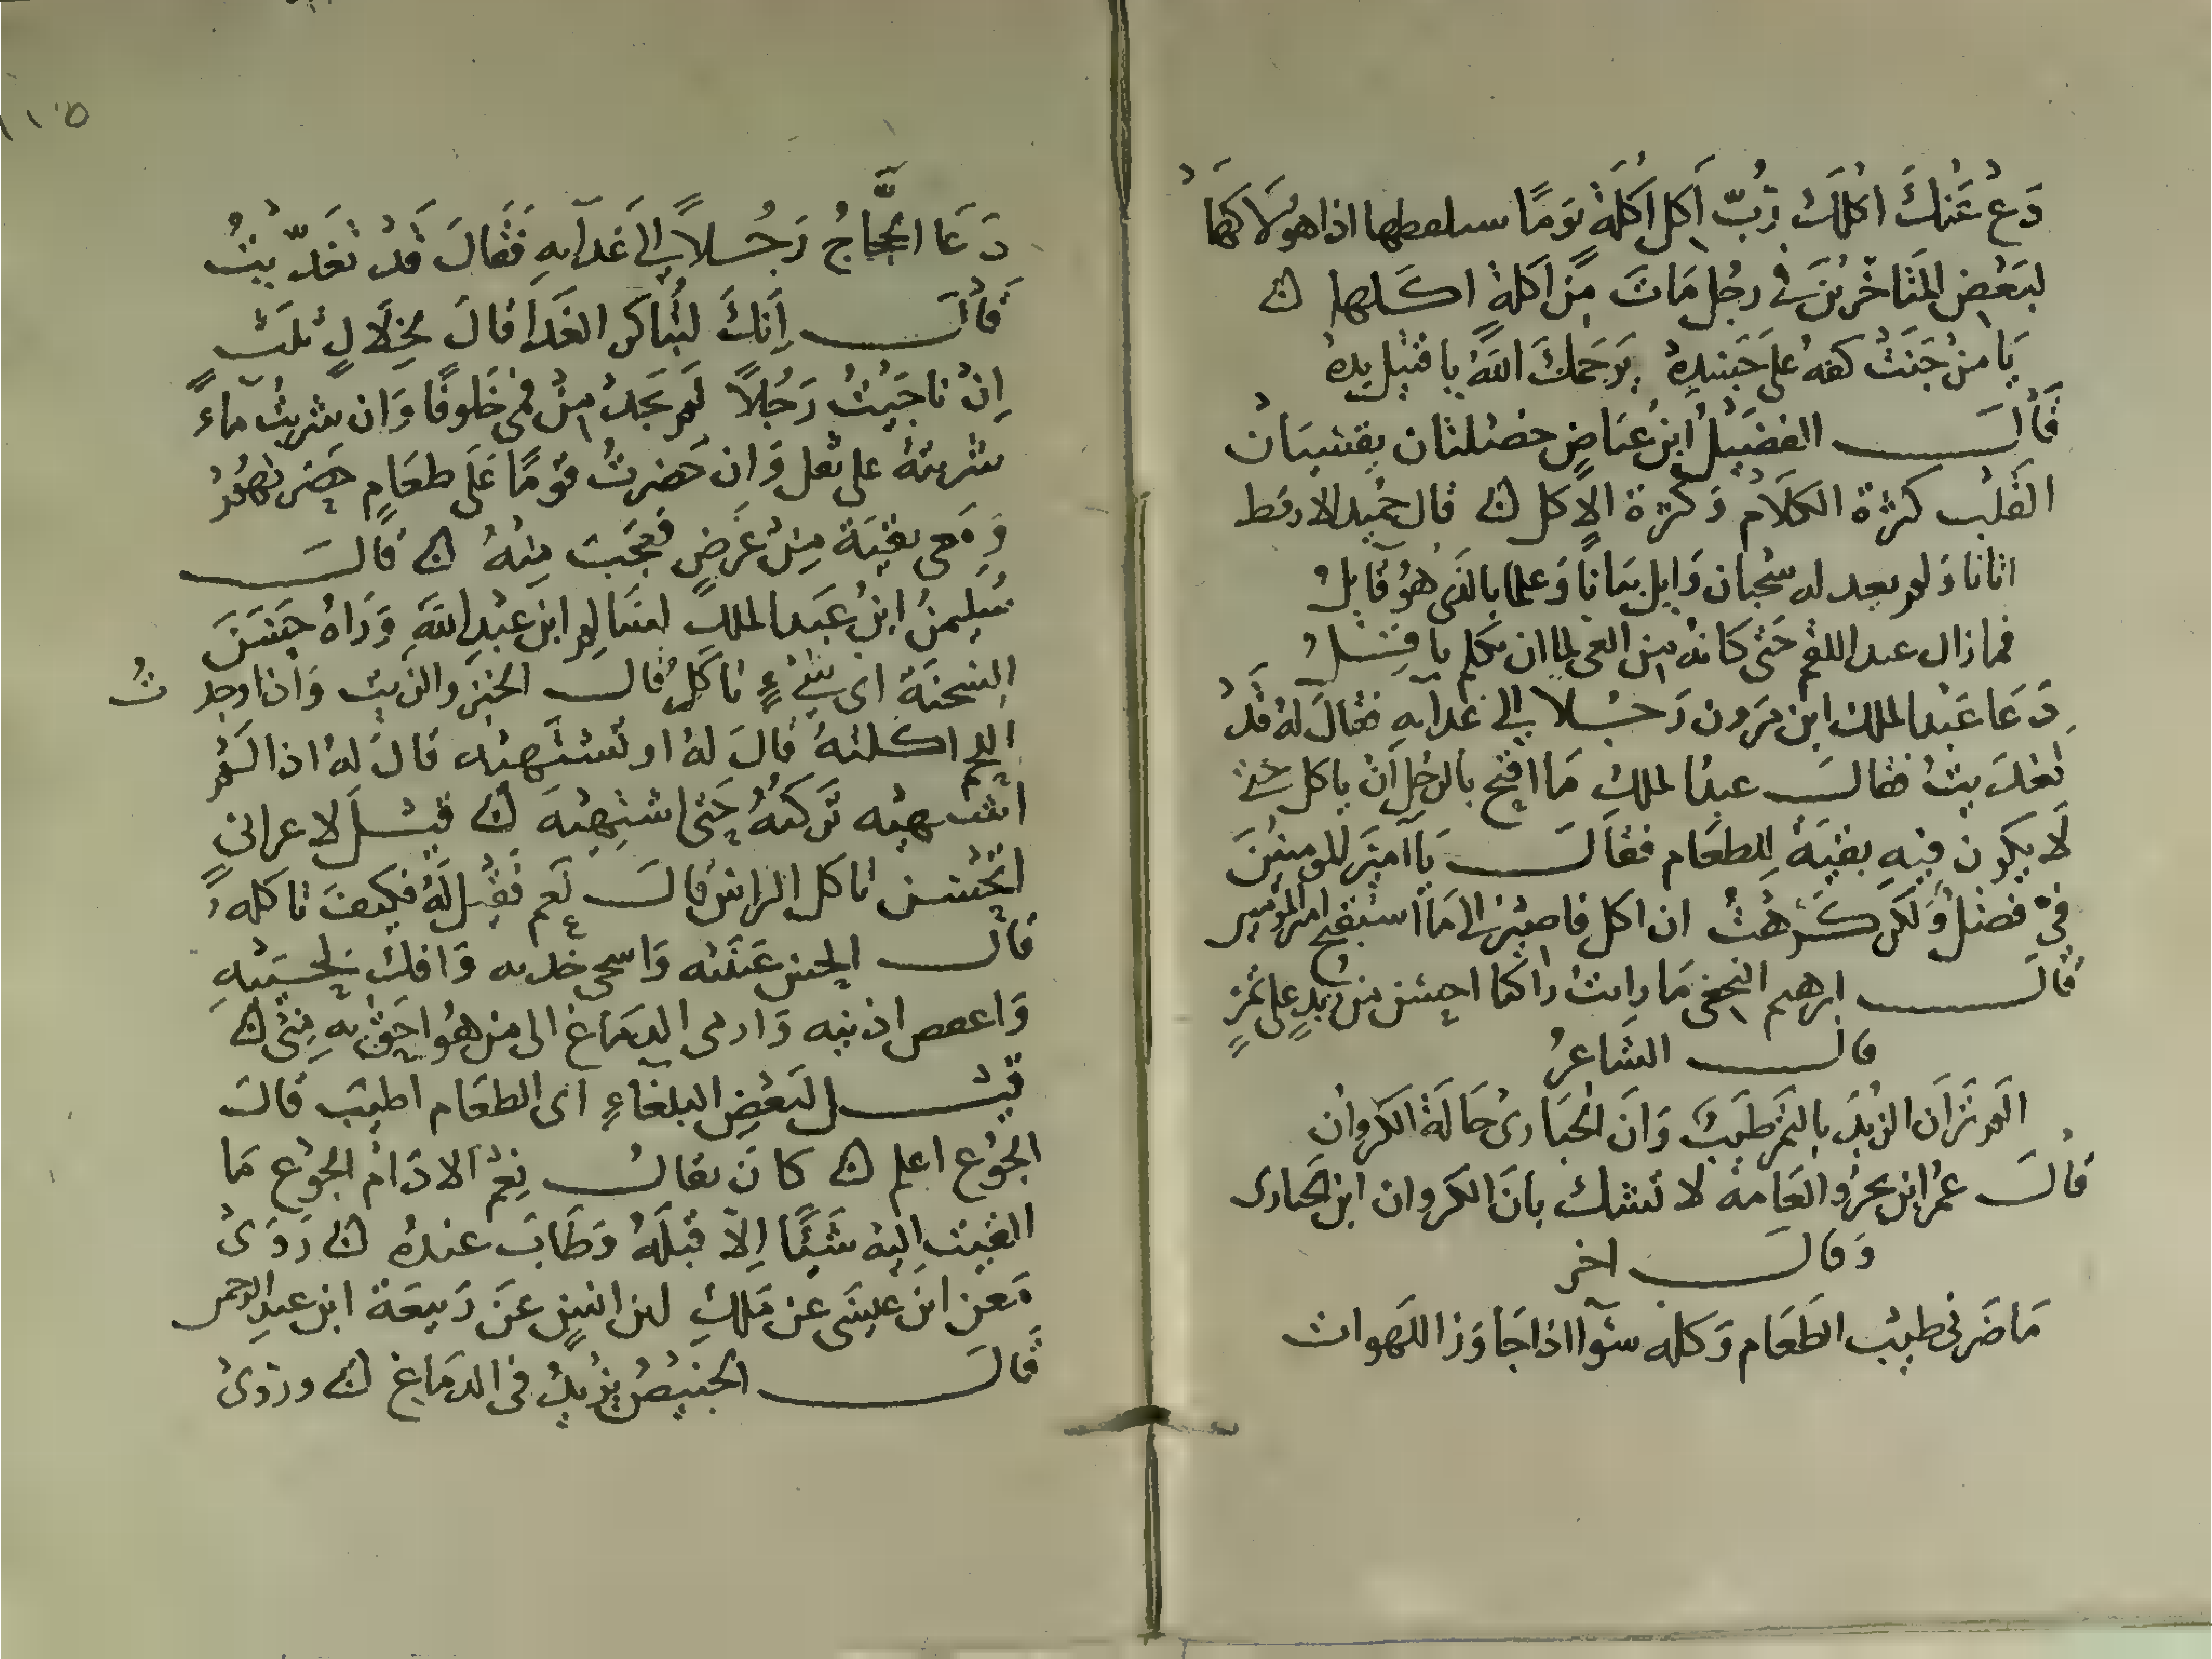 دَعْ عَنْكَ اكْلَكَ رُبّ اَكل اَكلَةٍ يَومًا اذا هو لَاكَهَا
لبَعْضِ المتَاخّرينَ في رجُل مَاتَ مِن اَكلةٍ اكلها ن
يَا منْ جَنَتْ كفه عَلى جَسَدِهْ يَرحَمكَ اللهُ يا قتيل يدهْ
قَالَ الفضَيْلُ ابنُ عيَاضٍ خصْلتان يقسّيَان
القَلْب كثرة الكلَام وَكثرة الاكل ن قال حميد الارقط
اتانا وَلم يعد له سحبان وَايل بيَانًا وَعلما بالذي هوَ قَايلُ
فما زال عند اللقم حَتى كانه مِن العي لما ان تكلم باقِلُ
دَعَا عَبْد الملك ابن مرون رَجُلا الى غدآيه فقالَ لهُ قَدْ
تغديتُ فقالَ عبدُ الملكِ مَا اقبح بالرجلِ اَنْ ياكل حتى
لَا يكون فيهِ بقيّة لِلطعَام فقَالَ يَا اَميَر المومنِينَ
فيَّ فضْلٌ وَلكن كَرهْتُ ان اكل فاصير الى مَا استقبح امير المومنين
قَالَ ابرهيم النخعي مَا رايت راكبا احسن من زبدٍ على تمرٍ
قالَ الشَاعرُ
الَم تَرَ اَن الزبدَ بالتمر طَيبٌ وَانَ الحُبَارى خَالَة الكروانِ
قَالَ عمْرُ ابن بحرُ والعَامة لا تشك بانَ الكروان ابن الحبارى
وَقالَ اخر
مَا ضَرنى طيب الطَعَام وَكله سَوآ اذا جَاوَز اللهوات
١١٥
دَعَا الحجَّاجُ رَجُلاً اِلى غَدآيهِ فَقَالَ قَدْ تَغَدَّيْتُ
قَالَ اِنَكَ لتُبَاكر الغَدَآ قالَ لخِلَالٍ ثلَثٍ
اِنْ نَاجَيْتُ رَجُلًا لَم يَجدْ مِنْ فمي خَلوفًا وَان شربتُ مآءً
شربتهُ على ثفل وَان حَضرتُ قوْمًا عَلَى طعَامٍ حضرتهُمْ
وَمَعى بقيّة مِنْ عَرضٍ فعجبَ مِنْهُ ن قَالَ
سُلِيمنُ ابنُ عَبَد الملكِ لسَالم ابن عبْدِ اللهِ وَرَاهُ حَسَنَ
السَحنَة اى شيءٍ تاكلُ قال الخبز والزيت وَاذا وجدتُ
اللحم اكلتهُ قالَ لهُ او تشتَهيه قالَ لهُ اذا لَمْ
اشتهيه تَركتهُ حَتى اشتهيَه ن قيْلَ لاعرابي
اتُحْسن تاكل الراس قالَ نَعم فَقِيلَ لَهُ فكيفَ تاكله
قالَ ابخس عَينَيه وَاسحى خديه وَافك لحييهِ
وَاعفص اذنيه وَارمى الدمَاغ الى من هُوَ احَقُّ بهِ مِنّى ن
قيْلَ لبَعْضِ البلغاءِ اَى الطعَام اطيَب قالَ
الجُوْع اعلم ن كانَ يقال نِعْمَ الادَامُ الجُوع مَا
القيْت اليهْ شَيئًا اِلاّ قبلَهُ وَطَابَ عندهُ ن رَوَىْ
مَعن ابن عيْسَى عَن مَلكِ ابن انسٍ عَن رَبيعَة ابن عبدِ الرحمن
قَالَ الخبيْصُ يزيدُ في الدمَاغ ن ورَوىْ